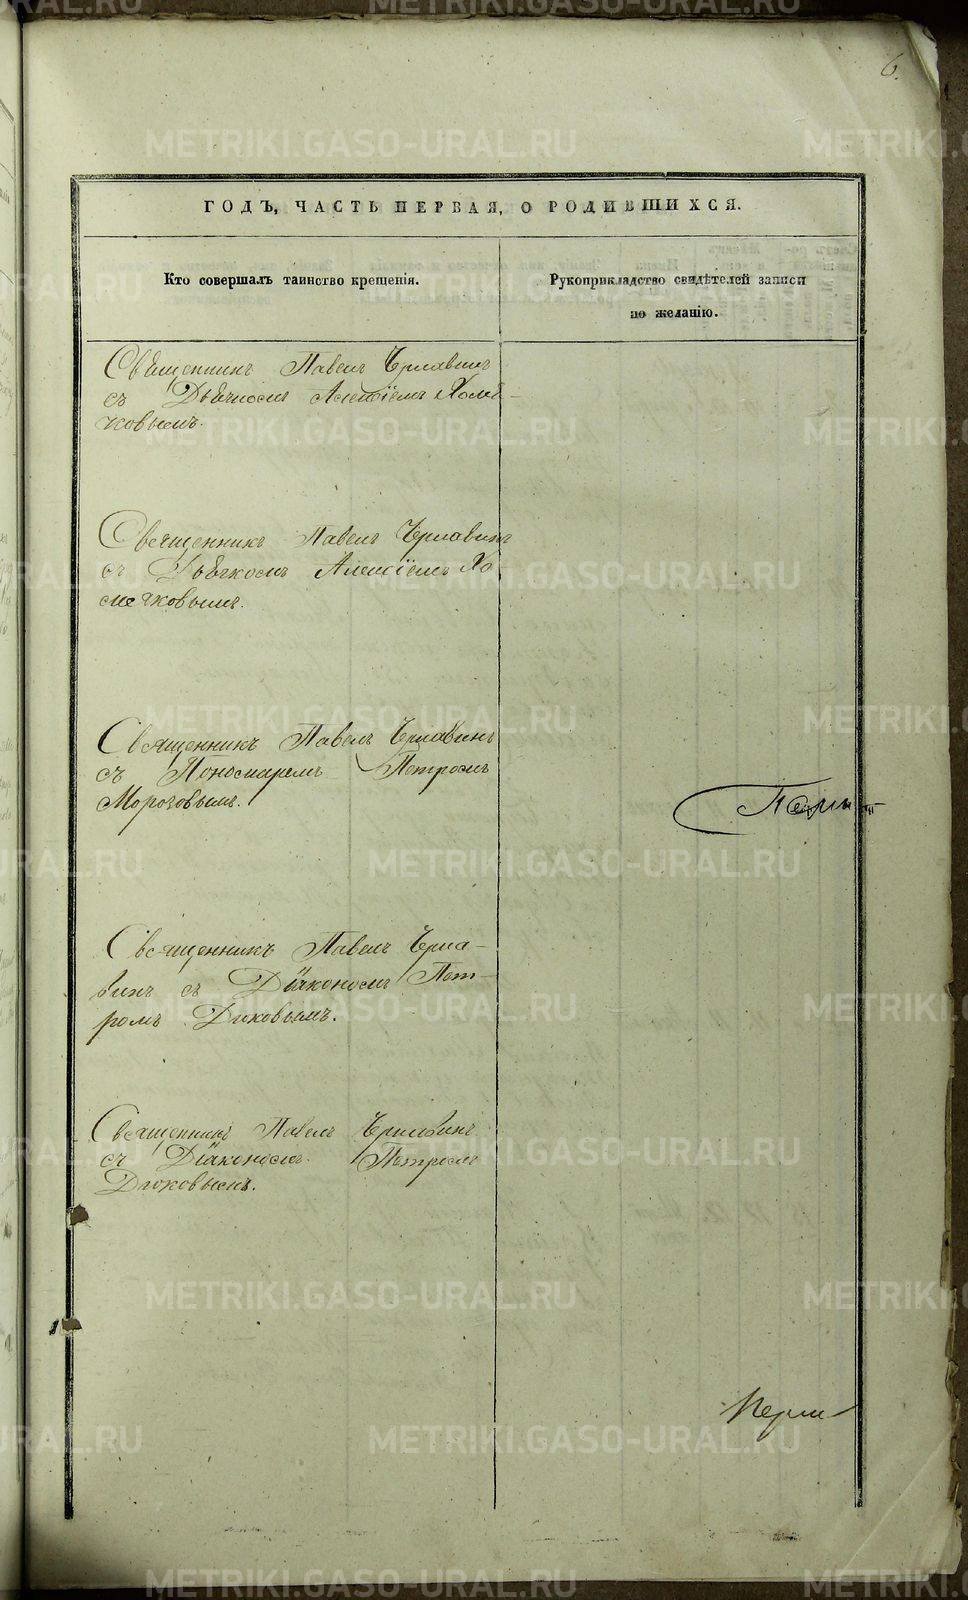 6.
ГОДЪ, ЧАСТЬ ПЕРВАЯ, О РОДИВШИХСЯ.
Кто совершалъ таинство крещенія.
Рукоприкладство свидѣтелей записи
по желанію.
Священникъ Павелъ Чернавинъ
съ Дьячкомъ Алексіемъ Хомя-
ковымъ.
Священникъ Павелъ Чернавинъ
съ Дьячкомъ Алексіемъ Хо-
мячковымъ.
Священникъ Павелъ Чернавинъ
съ Пономаремъ Петромъ
Морозовымъ.
Священникъ Павелъ Черна-
винъ съ Діякономъ Пет-
ромъ Диковымъ.
Священникъ Павелъ Чернавинъ
съ Діякономъ Петромъ
METRIKI.GASO-URAL.RU